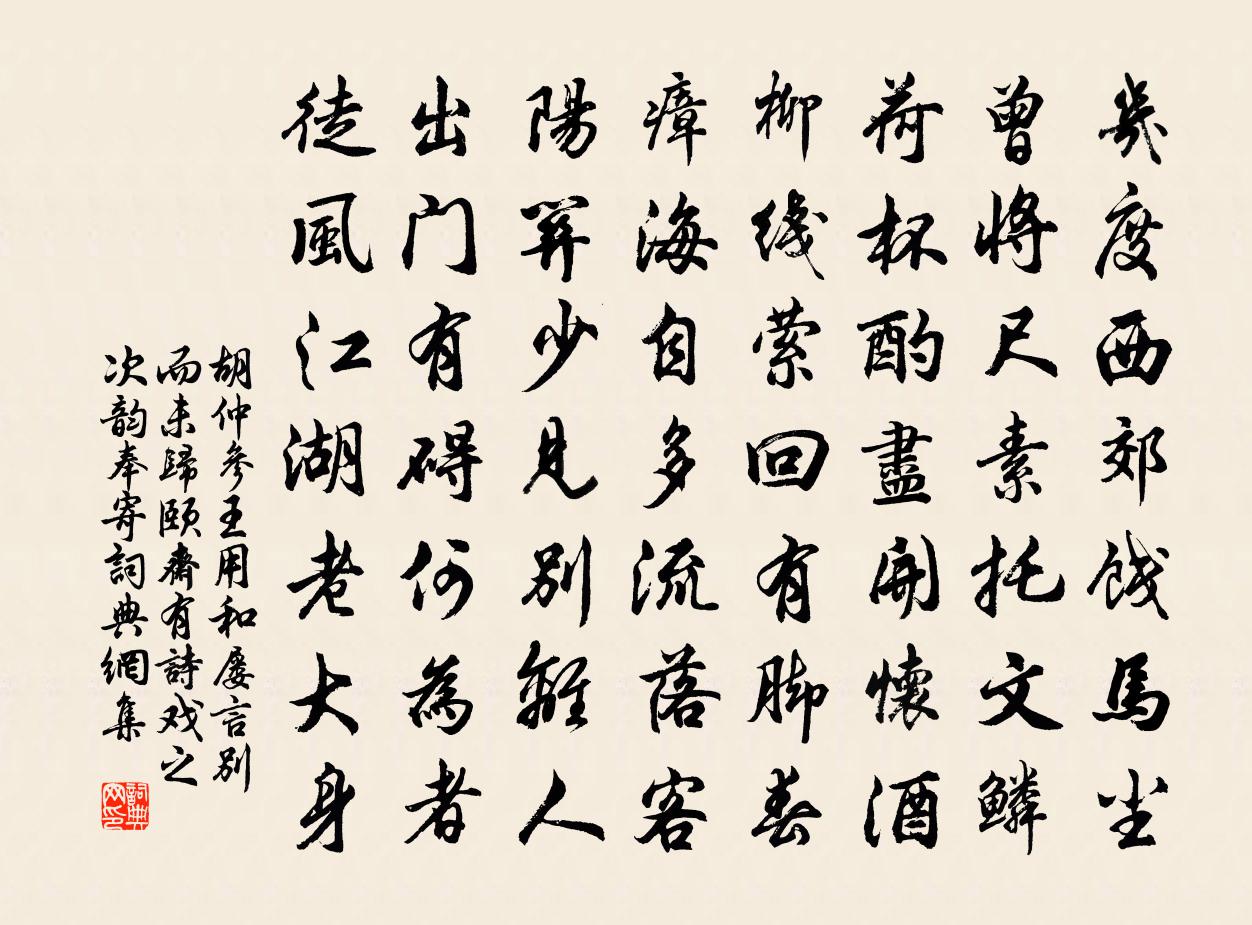 幾度西郊餞馬塵
曾將尺素托文鱗
荷杯酌盡開懷酒
柳綫縈回有脚春
瘴海自多流落客
陽關少見別離人
出门有碍何為者
徒風江湖老大身
胡仲參王用和屡言别
而未歸頤齋有詩戏之
次韵奉寄詞典網集
詞典网印